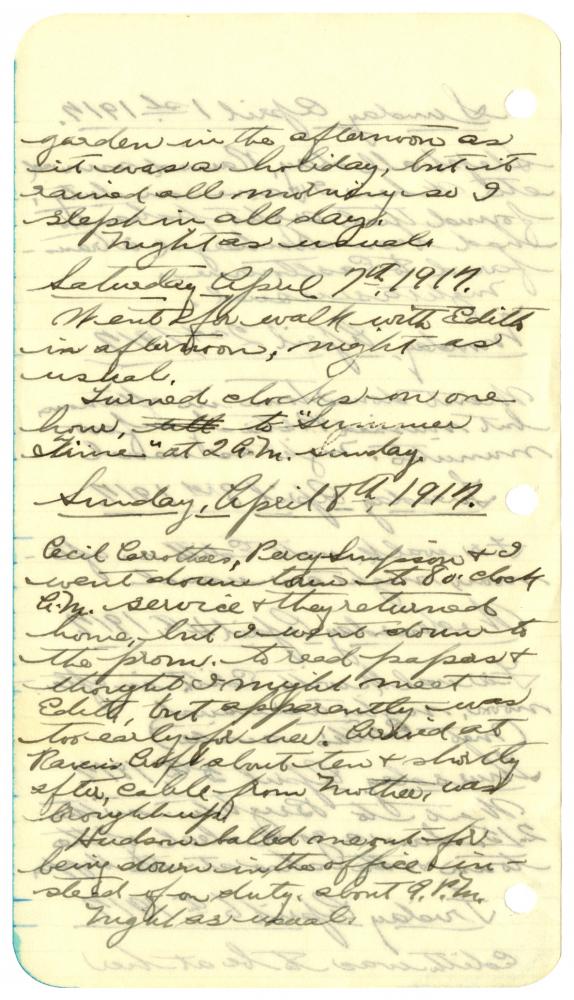 garden in the afternoon as
it was a holiday, but it
rained all morning so I
slept in all day.
Night as usual.
Saturday April 7th, 1917.
Went for walk with Edith
in afternoon, night as
usual.
Turned clocks on one
hour, to "Summer
Time" at 2 A.M. Sunday.
Sunday, April 8th, 1917.
Cecil Carrothers, Percy Simpson & I
went down town to 8 o'clock
A.M. service & they returned
home, but I went down to
the prom. to read papers &
thought I might meet
Edith, but apparently was
too early for her. Arrived at
Ravens Croft about ten & shortly
after, cable from Mother, was
brought up.
Hudson balled me out for
being down in the office in-
stead of on duty. about 9. P.M.
Night as usual.